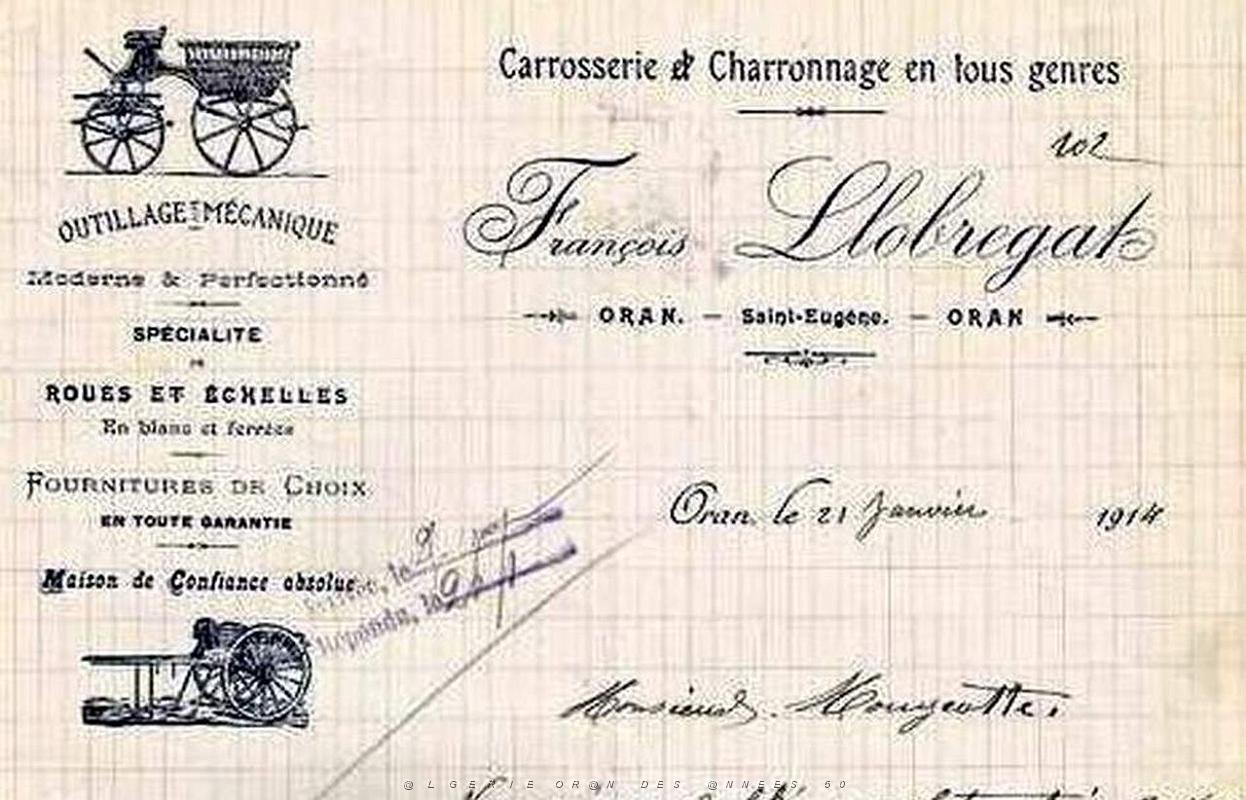 Carrosserie & Charronnage en tous genres
102
François Llobregat
ORAN. — Saint-Eugène. — ORAN
OUTILLAGE MÉCANIQUE
Moderne & Perfectionné
SPÉCIALITÉ
DE
ROUES ET ÉCHELLES
En blanc et ferrées
FOURNITURES DE CHOIX
EN TOUTE GARANTIE
Maison de Confiance absolue
Répondu, le 9
Oran, le 21 Janvier 1914
Monsieur Mougeotte.
@LGERIE OR@N DES @NNEES 50